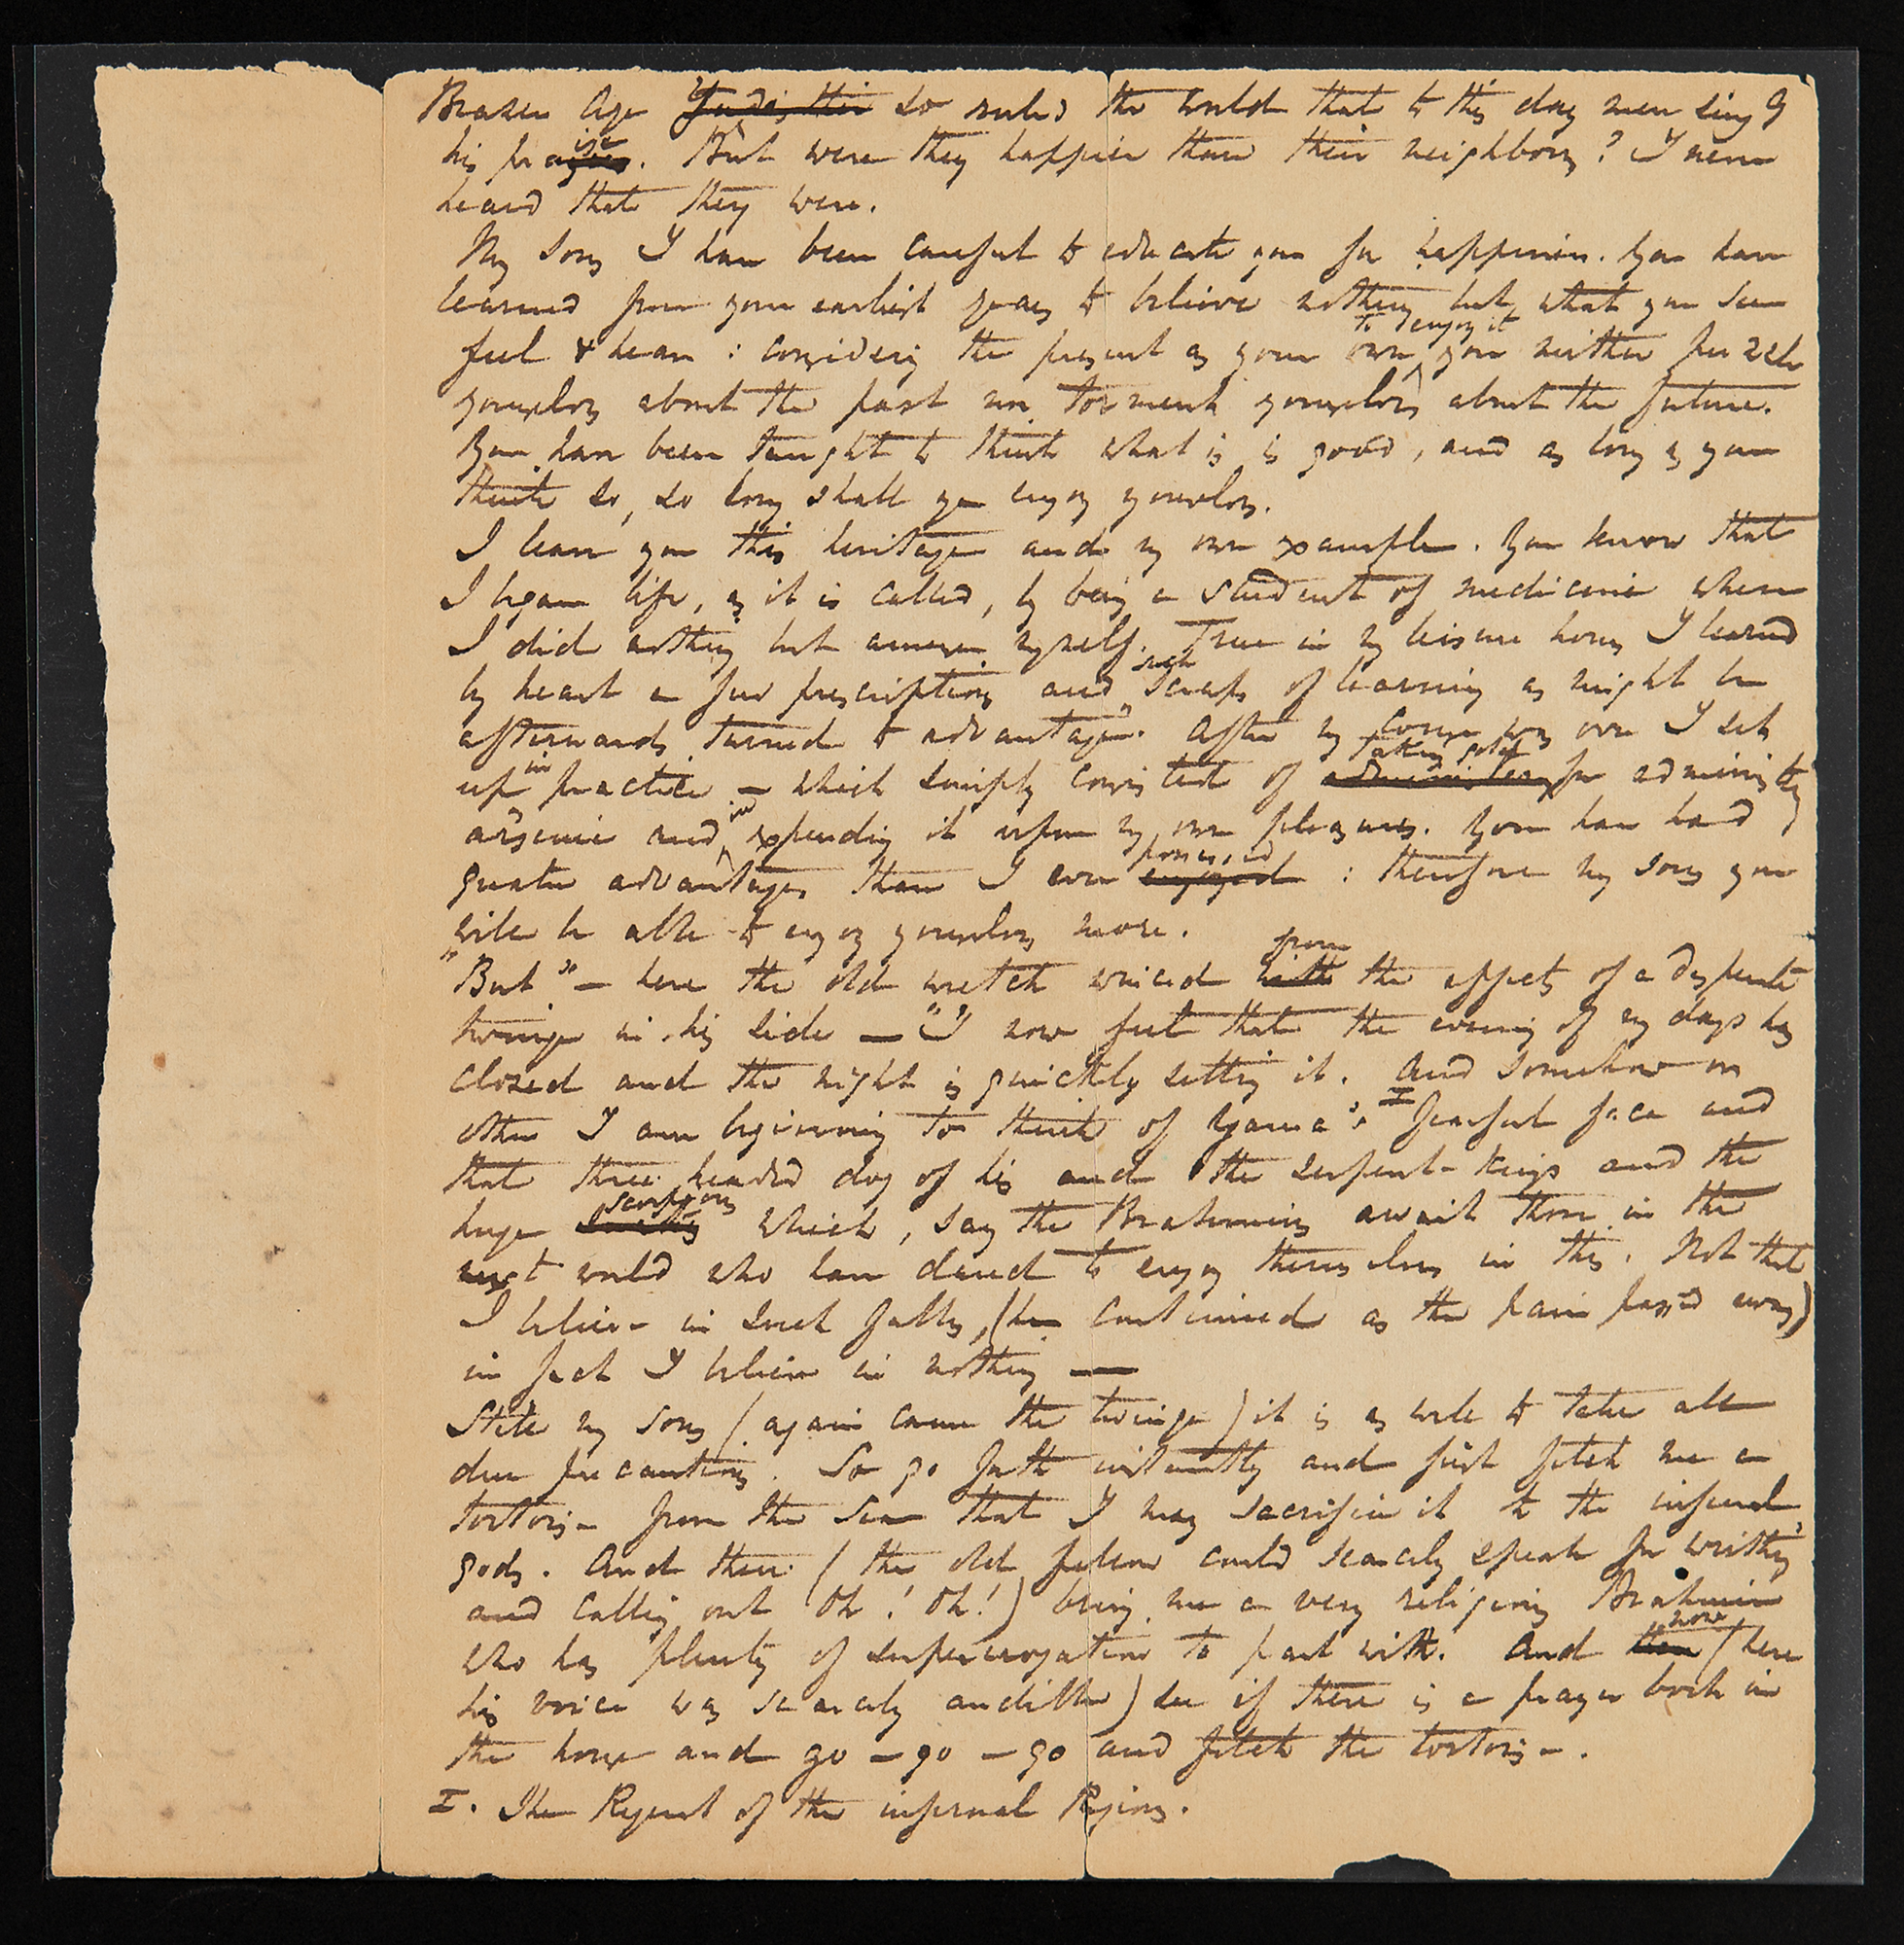 Brazen Age Yudishthir so ruled the world that to this day men sing of
his praise. But were they happier than their neighbours? I never
heard that they were.
My sons I have been careful to educate you for happiness. You have
learned from your earliest years to believe nothing but what you see
feel & hear: considering the present as your own to enjoy it you neither puzzle
yourselves about the past nor torment yourselves about the future.
You have been taught to think what is is good, and as long as you
think so, so long shall you enjoy yourselves.
I leave you this heritage and my own example. You know that
I began life, as it is called, by being a student of medicine when
I did nothing but amuse myself. True in my leisure hours I learned
by heart a few prescriptions and such scraps of learning as might be
afterwards turned to advantage. After my course was over I set
up in practice – which simply consisted of taking gold for administering
arsenic and in expending it upon my own pleasures. You have had
greater advantages than I ever possessed: therefore my sons you
will be able to enjoy yourselves more.
"But" – here the old wretch winced from the effects of a desperate
twinge in his side — "I now feel that the evening of my days has
closed and the night is quickly setting it. And somehow or
other I am beginning to think of Yama's I fearful face and
that three headed dog of his and the serpent-kings and the
huge scorpions which, say the Brahmins await those in the
next world who have dared to enjoy themselves in this. Not that
I believe in such folly, (he continued as the pain passed away)
in fact I believe in nothing —
Still my sons (again came the twinge) it is as well to take all
due precautions. So go forth instantly and first fetch me a
tortoise from the sea that I may sacrifice it to the infernal
gods. And then (the old fellow could scarcely speak for writhing
and calling out Oh! Oh!) bring me a very religious Brahmin
who has plenty of supererogation to part with. And now (here
his voice was scarcely audible) see if there is a prayer book in
the house and go – go – go and fetch the tortoise.
I. The Regent of the infernal Regions.